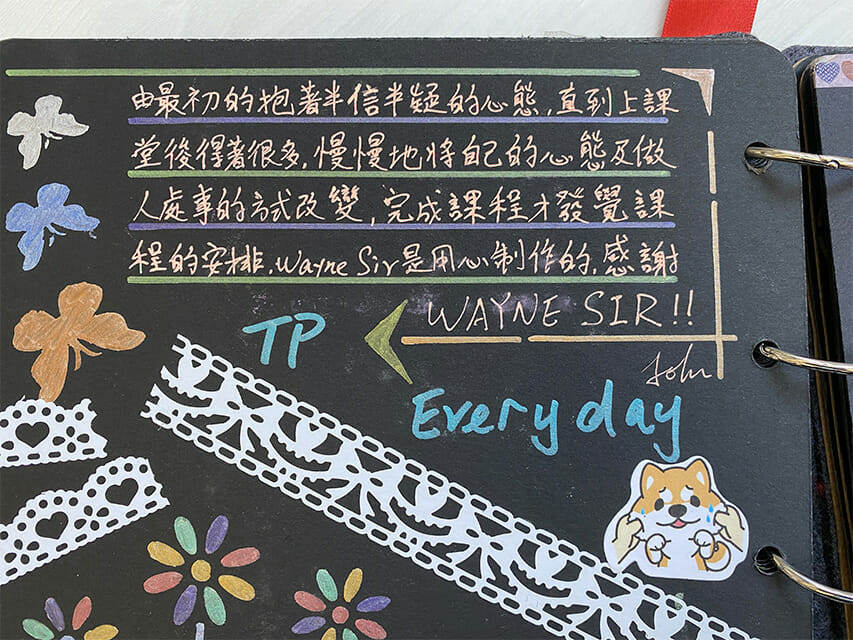 由最初的抱著半信半疑的心態,直到上課
堂後得著很多,慢慢地將自己的心態及做
人處事的方式改變,完成課程才發覺課
程的安排,Wayne Sir是用心制作的,感謝
WAYNE SIR!!
John
TP
Everyday